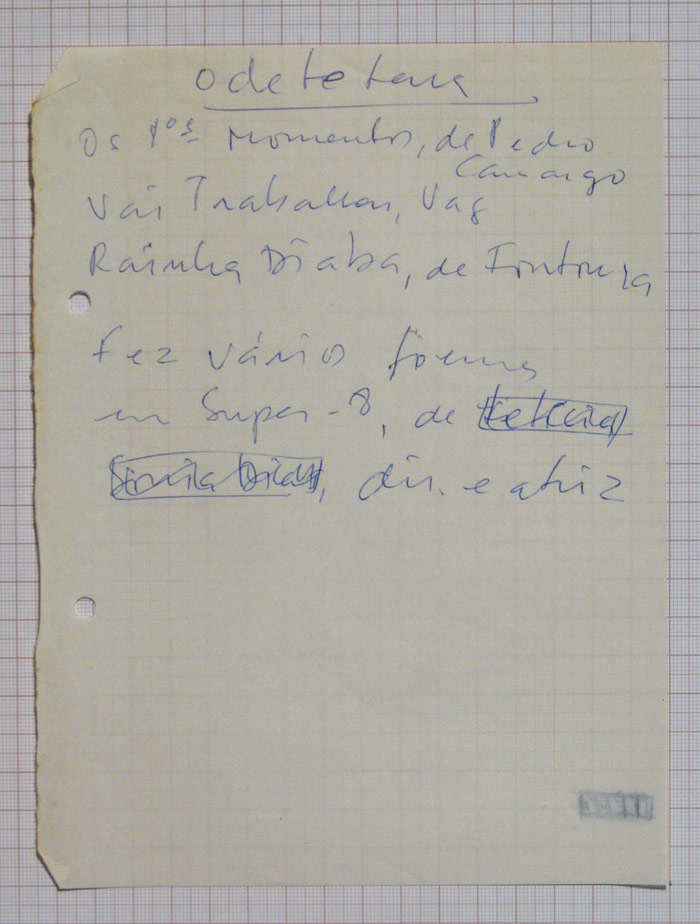 Odete Lara
Os 1ºs Momentos, de Pedro
Camargo
Vai Trabalhar, Vag
Rainha Diaba, de Fontoura
Fez vários foemas
em Super-8, de
, dir. e atriz